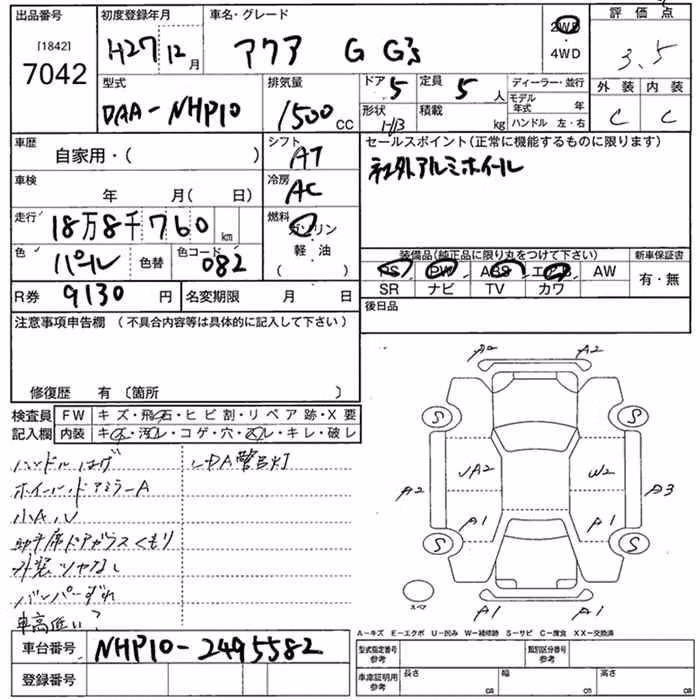 出品番号
[1842]
7042
初度登録年月
H27 12月
車名・グレード
アクア G G's
2WD
4WD
評価点
3.5
外装 内装
C C
型式
DAA-NHP10
排気量
1500 CC
ドア 5
形状 H/B
定員 5 人
積載 kg
ディーラー・並行
モデル年式 年
ハンドル 左・右
車歴
自家用・( )
シフト
AT
車検
年 月( 日)
冷房
AC
走行
18万8千760 km
燃料
ガソリン
軽油
( )
色
パール
色替
色コード
082
R券 9130 円
名変期限 月 日
セールスポイント(正常に機能するものに限ります)
社外アルミホイール
装備品(純正品に限り丸をつけて下さい)
PS PW ABS エアB AW
SR ナビ TV カワ
新車保証書
有・無
後日品
注意事項申告欄 (不具合内容等は具体的に記入して下さい)
修復歴 有〔箇所 〕
検査員 記入欄
FW キズ・飛石・ヒビ割・リペア跡・X要
内装 キズ・汚レ・コゲ・穴・スレ・キレ・破レ
ハンドルはげ
ホイール・ドアミラーA
小A,U
助手席ドアガラスくもり
外装ツヤなし
バンパーずれ
車高低い?
LDA警告灯
A2 A2
S S
A2 UA2 W2 A3
A1 A1
S S
スペア
A1 A1
A-キズ E-エクボ U-凹み W-補修跡 S-サビ C-腐食 XX-交換済
車台番号
NHP10-2495582
登録番号
型式指定番号
参考
類別区分番号
参考
車庫証明用
参考
長さ cm
幅 cm
高さ cm